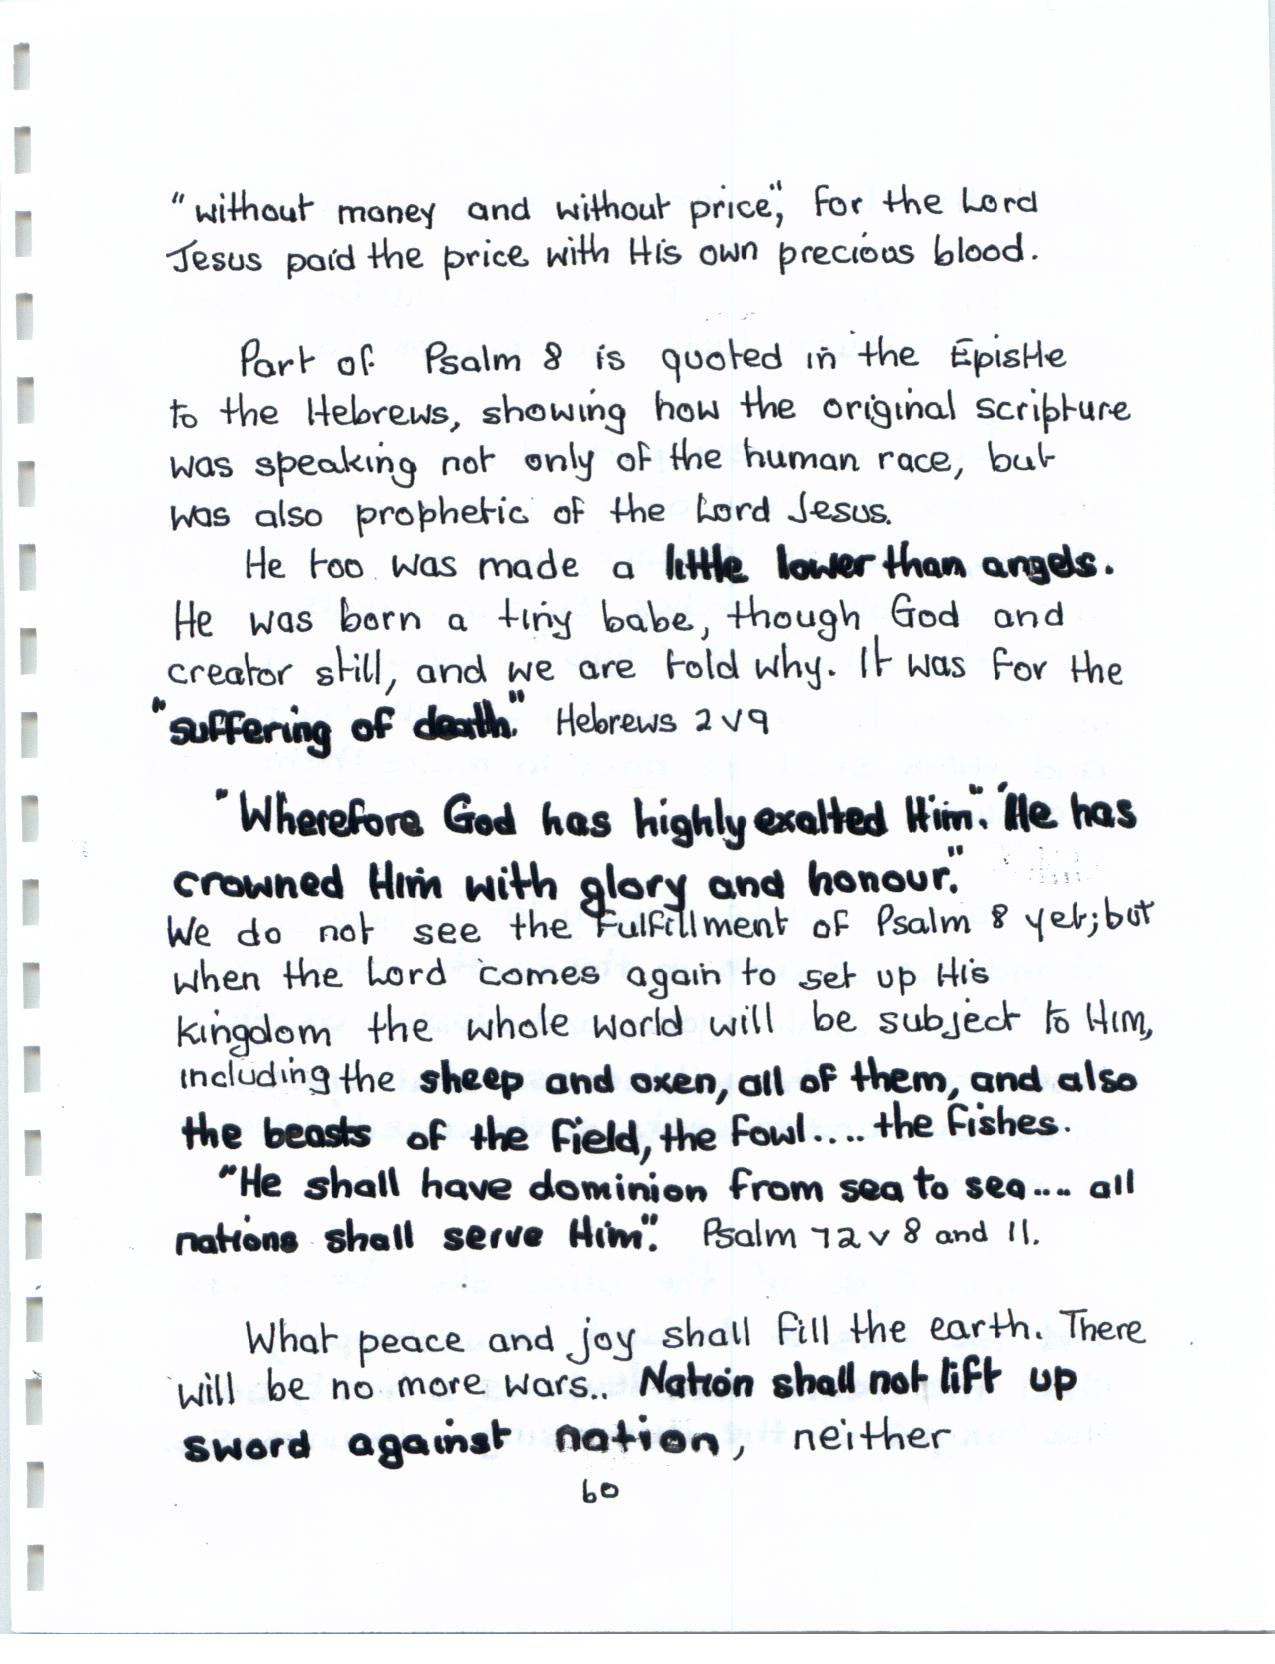 "without money and without price", for the Lord
Jesus paid the price with His own precious blood.
Part of Psalm 8 is quoted in the Epistle
to the Hebrews, showing how the original scripture
was speaking not only of the human race, but
was also prophetic of the Lord Jesus.
He too was made a little lower than angels.
He was born a tiny babe, though God and
creator still, and we are told why. It was for the
"suffering of death." Hebrews 2 v 9
"Wherefore God has highly exalted Him". "He has
crowned Him with glory and honour."
We do not see the fulfillment of Psalm 8 yet; but
when the Lord comes again to set up His
kingdom the whole world will be subject to Him,
including the sheep and oxen, all of them, and also
the beasts of the field, the fowl.... the fishes.
"He shall have dominion from sea to sea.... all
nations shall serve Him". Psalm 72 v 8 and 11.
What peace and joy shall fill the earth. There
will be no more wars... Nation shall not lift up
sword against nation, neither
60